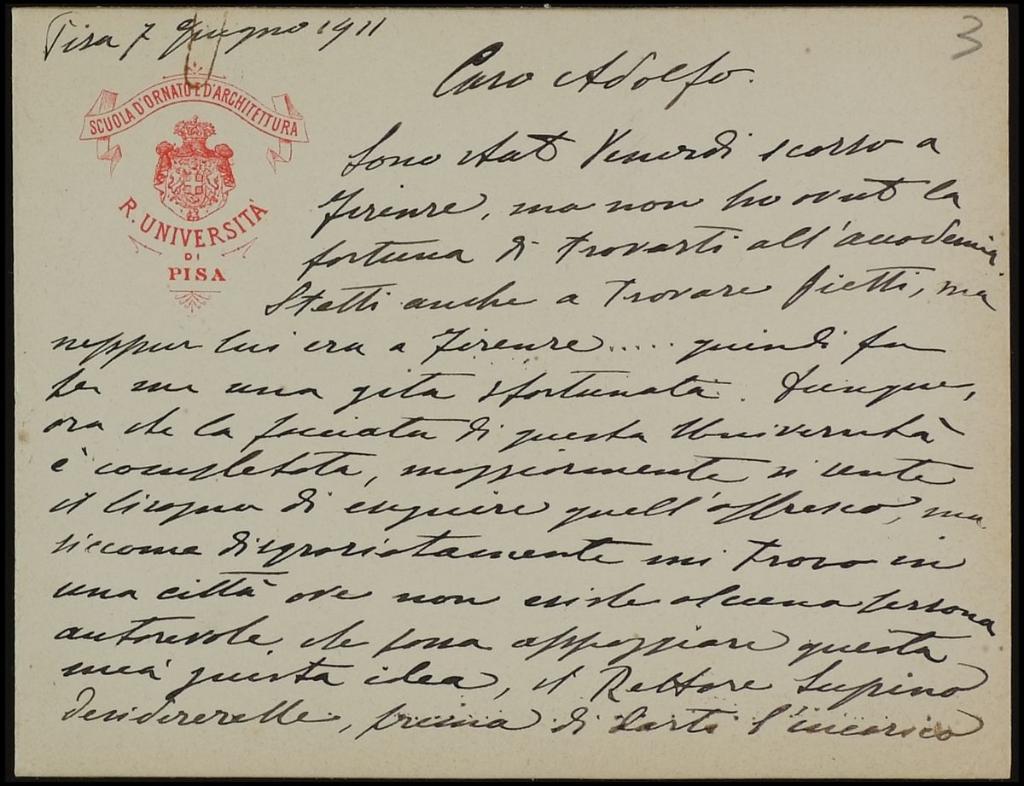 Pisa 7 Giugno 1911
3
Caro Adolfo.
SCUOLA D'ORNATO E D'ARCHITETTURA
R. UNIVERSITÀ
DI
PISA
Sono stato Venerdì scorso a
Firenze, ma non ho avuto la
fortuna di trovarti all'accademia.
Stetti anche a trovare ma
neppur lui era a Firenze..... quindi fu
per me una gita sfortunata. Dunque,
ora che la facciata di questa Università
è completata, maggiormente si sente
il bisogno di eseguire quell'affresco, ma
siccome disgraziatamente mi trovo in
una città ove non esiste alcuna persona
autorevole che possa appoggiare questa
mia giusta idea, il Rettore Supino
desidererebbe, prima di darti l'incarico